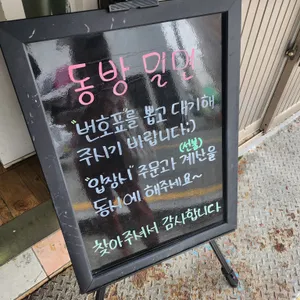 동방 밀면
"번호표"를 뽑고 대기해
주시기 바랍니다:)
(선불)
"입장시" 주문과 계산을
동시에 해주세요~
찾아주셔서 감사합니다